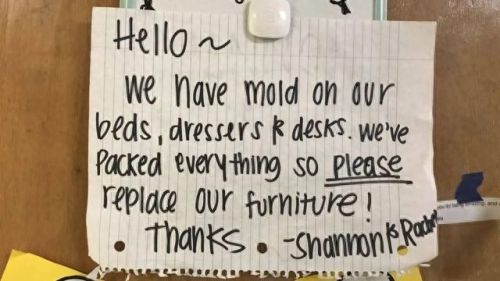 Hello ~
we have mold on our
beds, dressers & desks. we've
packed everything so please
replace our furniture!
Thanks -Shannon &